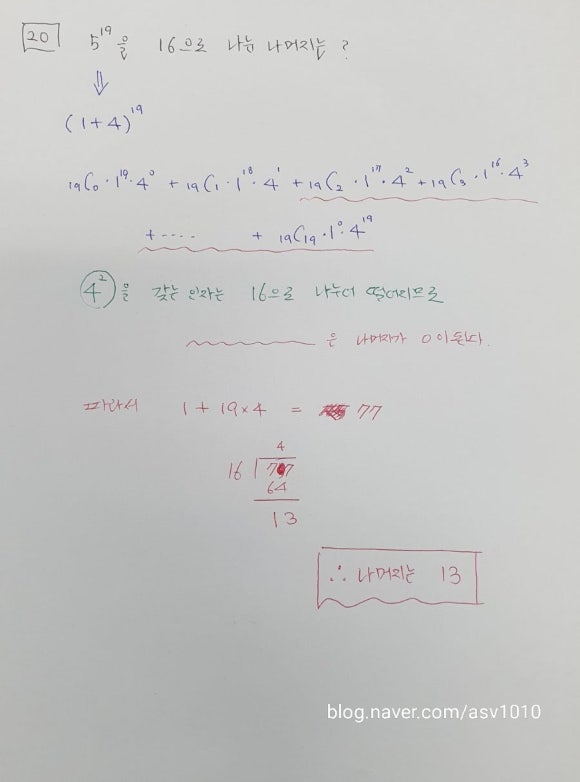 20 5¹⁹을 16으로 나눈 나머지는?
⇓
(1+4)¹⁹
₁₉C₀·1¹⁹·4⁰ + ₁₉C₁·1¹⁸·4¹ + ₁₉C₂·1¹⁷·4² + ₁₉C₃·1¹⁶·4³
+ ..... + ₁₉C₁₉·1⁰·4¹⁹
4²을 갖는 인자는 16으로 나누어 떨어지므로
은 나머지가 0이 된다.
따라서 1 + 19×4 = 77
4
16 77
64
13
∴ 나머지는 13
blog.naver.com/asv1010